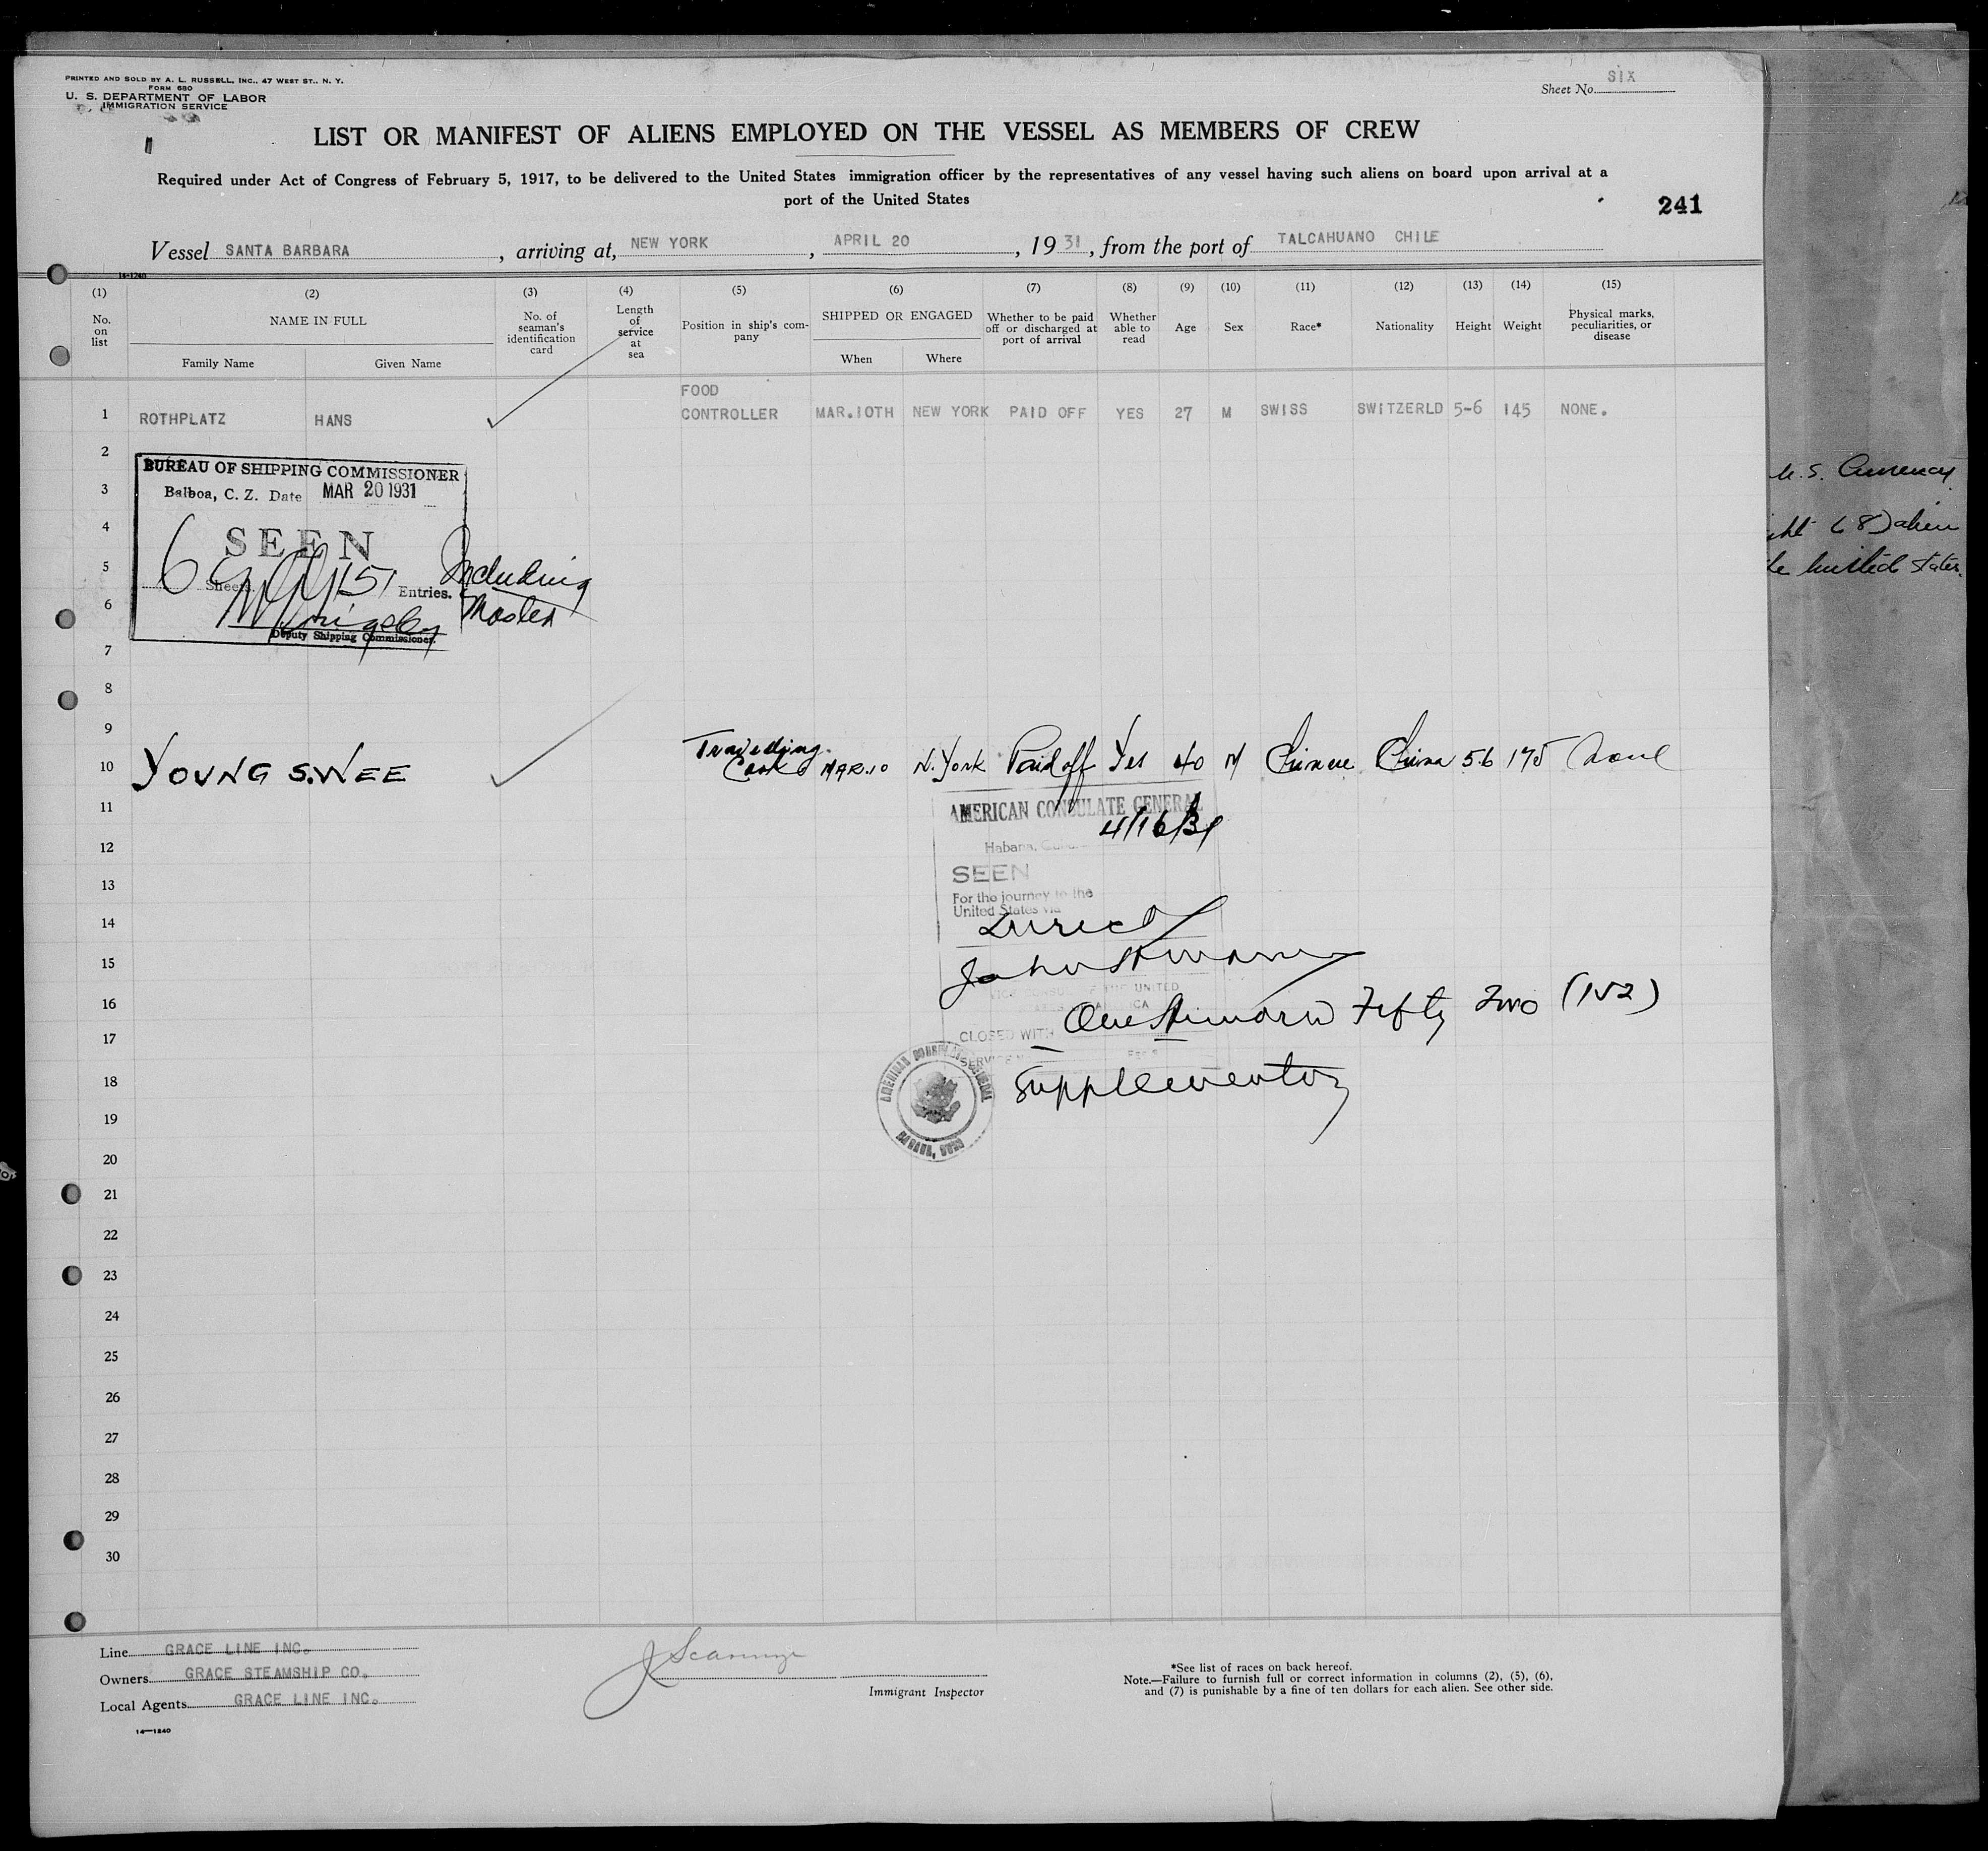 PRINTED AND SOLD BY A. L. RUSSELL, INC., 47 WEST ST., N. Y.
FORM 680
U. S. DEPARTMENT OF LABOR
IMMIGRATION SERVICE
Sheet No. SIX
LIST OR MANIFEST OF ALIENS EMPLOYED ON THE VESSEL AS MEMBERS OF CREW
Required under Act of Congress of February 5, 1917, to be delivered to the United States immigration officer by the representatives of any vessel having such aliens on board upon arrival at a
port of the United States
241
Vessel SANTA BARBARA, arriving at, NEW YORK, APRIL 20, 1931, from the port of TALCAHUANO CHILE
14-1240
(1) (2) (3) (4) (5) (6) (7) (8) (9) (10) (11) (12) (13) (14) (15)
No. on list
NAME IN FULL
Family Name Given Name
No. of seaman's identification card
Length of service at sea
Position in ship's company
SHIPPED OR ENGAGED
When Where
Whether to be paid off or discharged at port of arrival
Whether able to read
Age
Sex
Race*
Nationality
Height
Weight
Physical marks, peculiarities, or disease
1 ROTHPLATZ HANS FOOD CONTROLLER MAR.10TH NEW YORK PAID OFF YES 27 M SWISS SWITZERLD 5-6 145 NONE.
2
BUREAU OF SHIPPING COMMISSIONER
3
Balboa, C. Z. Date MAR 20 1931
4
SEEN
5
6 Sheets 151 Entries. Including
6
Master
Deputy Shipping Commissioner.
7
8
9
10 YOUNG S.WEE Travelling Cook MAR.10 N.York Paid off Yes 40 M Chinese China 5.6 175 None
11
AMERICAN CONSULATE GENERAL
4/16/31
12
Habana, Cuba
13
SEEN
For the journey to the
United States via
14
Direct
15
16
VICE CONSUL OF THE UNITED
One Hundred Fifty Two (152)
17
CLOSED WITH
SERVICE
18
Supplementary
AMERICAN CONSULATE GENERAL
HABANA, CUBA
19
20
21
22
23
24
25
26
27
28
29
30
Line GRACE LINE INC.
Owners GRACE STEAMSHIP CO.
Local Agents GRACE LINE INC.
14-1240
Immigrant Inspector
*See list of races on back hereof.
Note.—Failure to furnish full or correct information in columns (2), (5), (6),
and (7) is punishable by a fine of ten dollars for each alien. See other side.
U. S. Currency
(8) alien
United States.